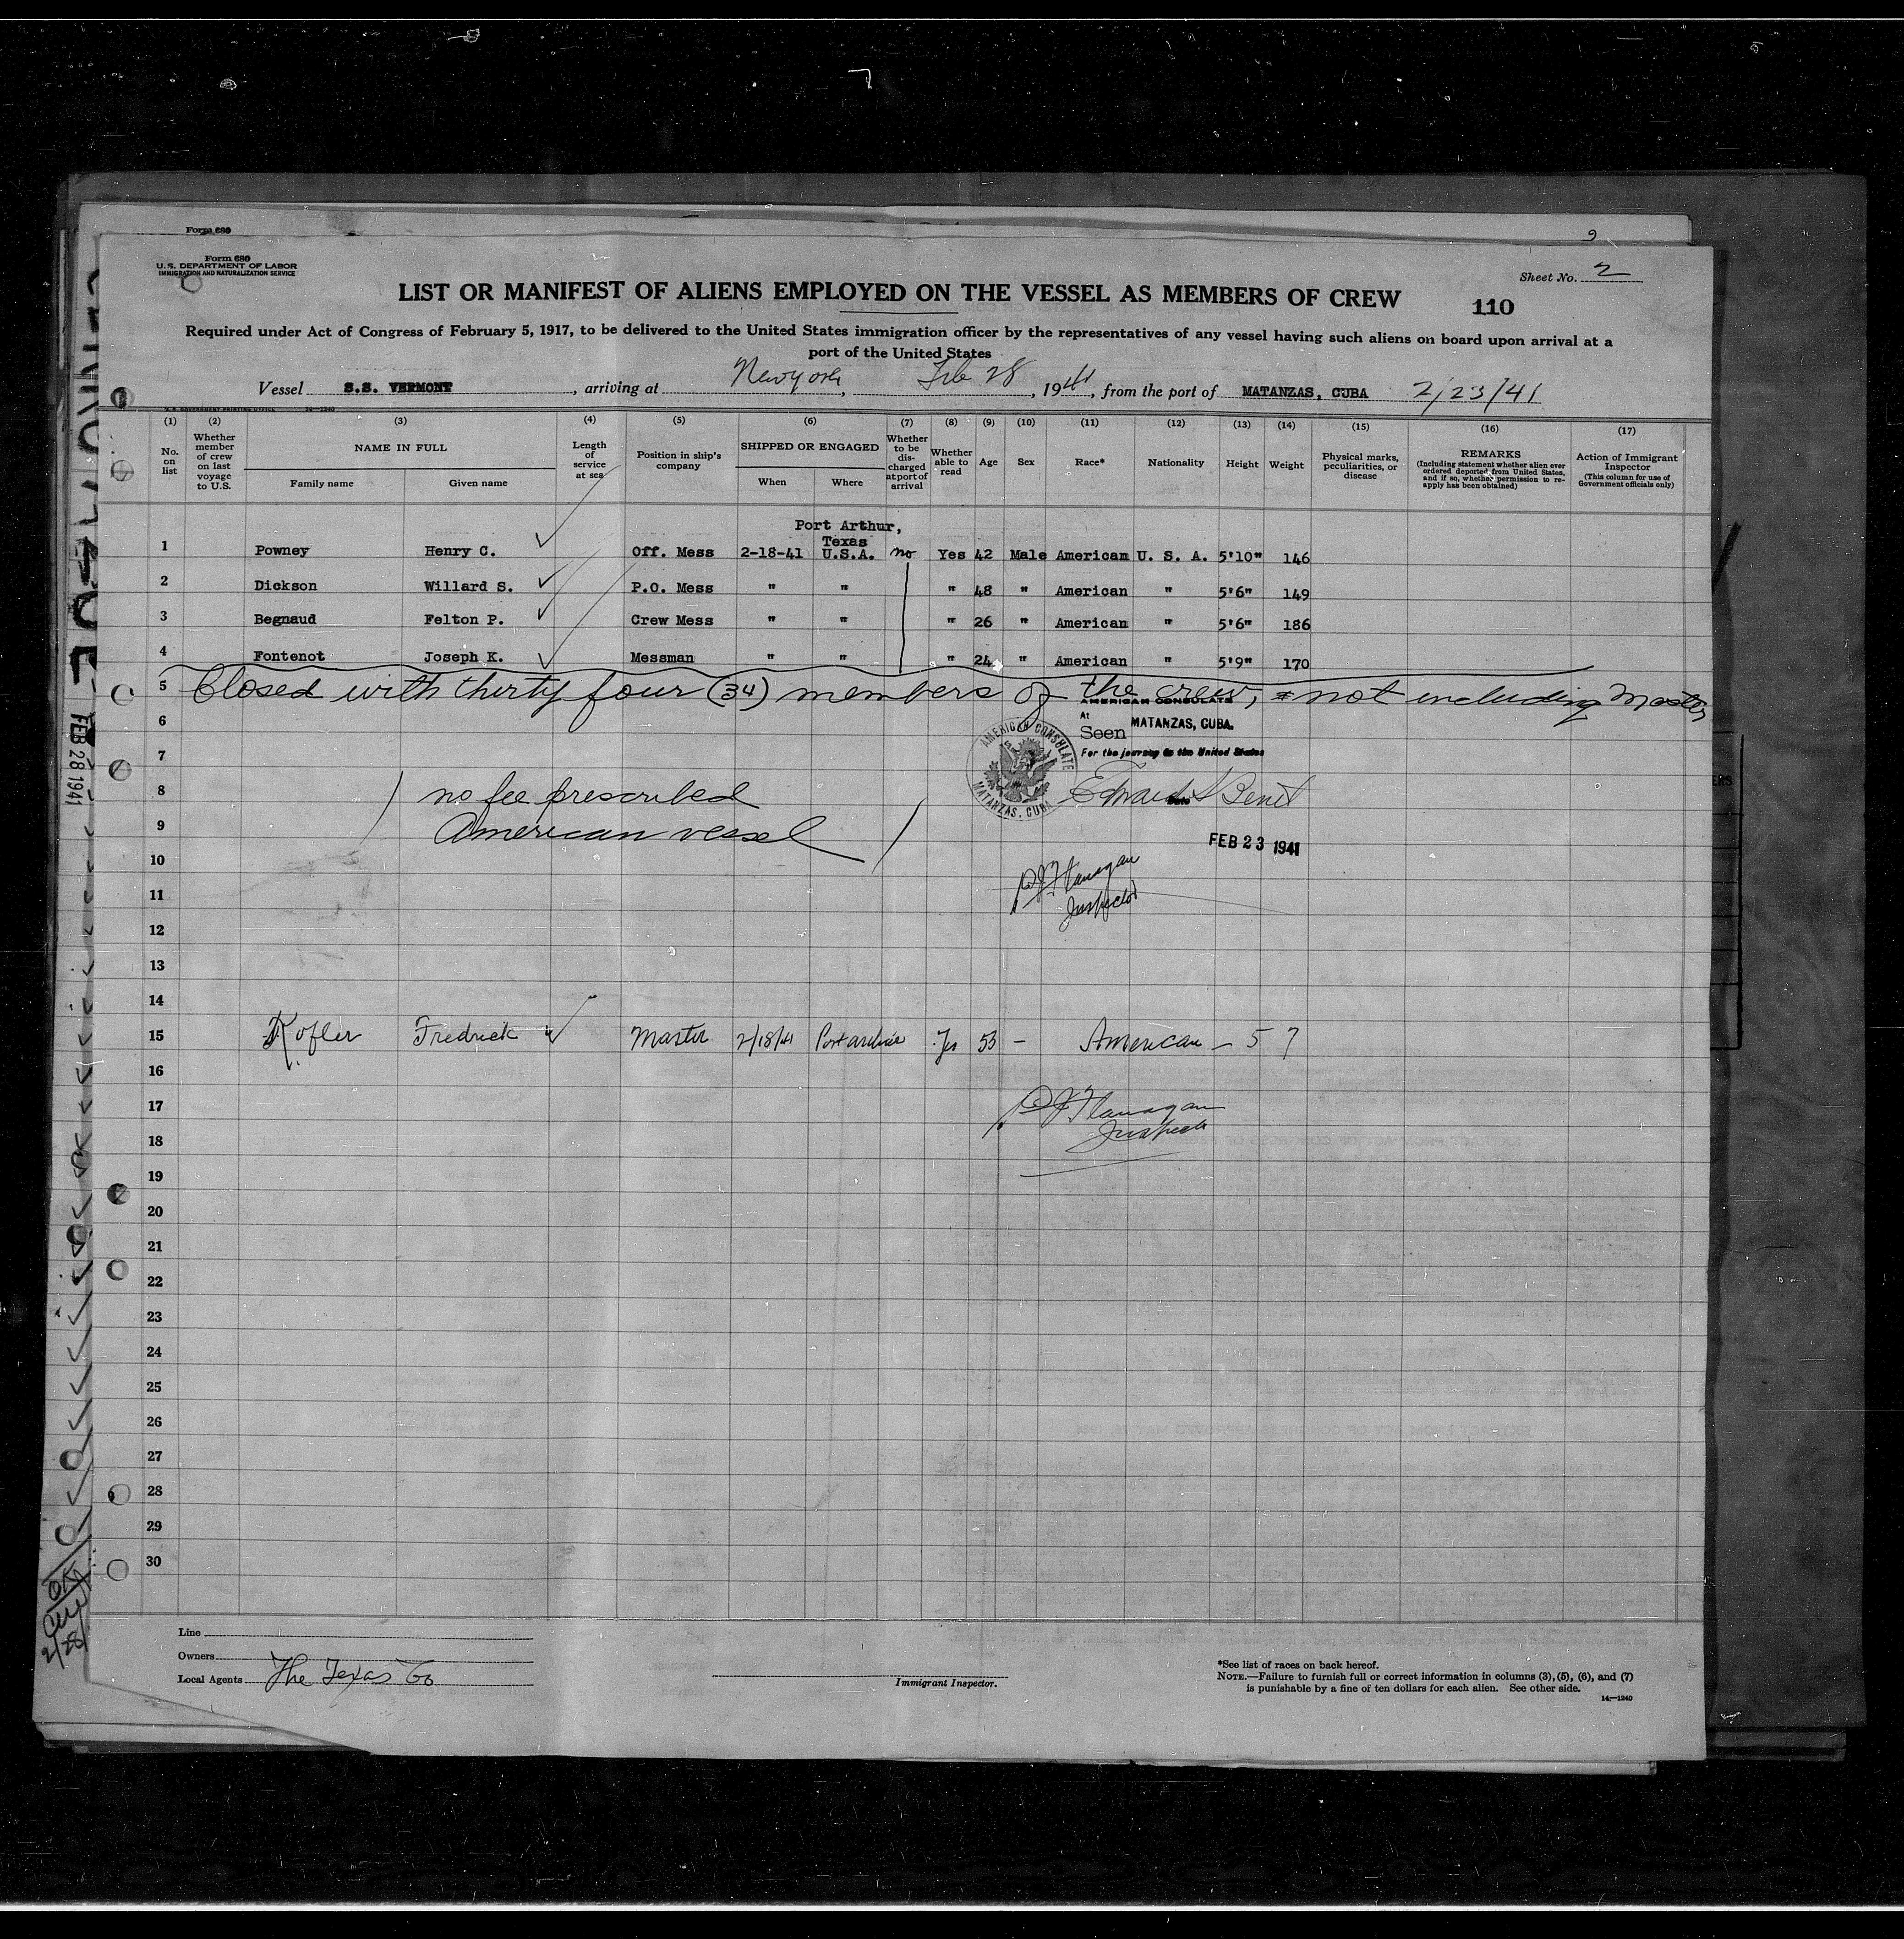 Form 680
Form 680
U.S. DEPARTMENT OF LABOR
IMMIGRATION AND NATURALIZATION SERVICE
Sheet No. 2
LIST OR MANIFEST OF ALIENS EMPLOYED ON THE VESSEL AS MEMBERS OF CREW
110
Required under Act of Congress of February 5, 1917, to be delivered to the United States immigration officer by the representatives of any vessel having such aliens on board upon arrival at a
port of the United States
Vessel S.S. VERMONT, arriving at New York, Feb 28, 1941, from the port of MATANZAS, CUBA 2/23/41
U. S. GOVERNMENT PRINTING OFFICE 14—1240
(1) (2) (3) (4) (5) (6) (7) (8) (9) (10) (11) (12) (13) (14) (15) (16) (17)
No. on list
Whether member of crew on last voyage to U.S.
NAME IN FULL
Family name Given name
Length of service at sea
Position in ship's company
SHIPPED OR ENGAGED
When Where
Whether to be discharged at port of arrival
Whether able to read
Age
Sex
Race*
Nationality
Height
Weight
Physical marks, peculiarities, or disease
REMARKS
(Including statement whether alien ever ordered deported from United States, and if so, whether permission to reapply has been obtained)
Action of Immigrant Inspector
(This column for use of Government officials only)
Port Arthur,
Texas
1 Powney Henry C. Off. Mess 2-18-41 U.S.A. no Yes 42 Male American U. S. A. 5'10" 146
2 Dickson Willard S. P.O. Mess " " " 48 " American " 5'6" 149
3 Begnaud Felton P. Crew Mess " " " 26 " American " 5'6" 186
4 Fontenot Joseph K. Messman " " " 24 " American " 5'9" 170
5 Closed with thirty four (34) members of the crew, not including Master
AMERICAN CONSULATE
6 At MATANZAS, CUBA.
Seen
7 For the journey to the United States
AMERICAN CONSULATE MATANZAS, CUBA
8 no fee prescribed
Edward S Benet
9 American vessel
FEB 23 1941
10 P J Flanagan
11 Inspector
12
13
14
15 Kofler Fredrick Master 2/18/41 Port Arthur Yes 53 – American – 5 7
16
17 P J Flanagan
18 Inspector
19
20
21
22
23
24
25
26
27
28
29
30
FEB 28 1941
OK
2/28/
Line
Owners
Local Agents The Texas Co
Immigrant Inspector.
*See list of races on back hereof.
NOTE.—Failure to furnish full or correct information in columns (3), (5), (6), and (7)
is punishable by a fine of ten dollars for each alien. See other side.
14—1240